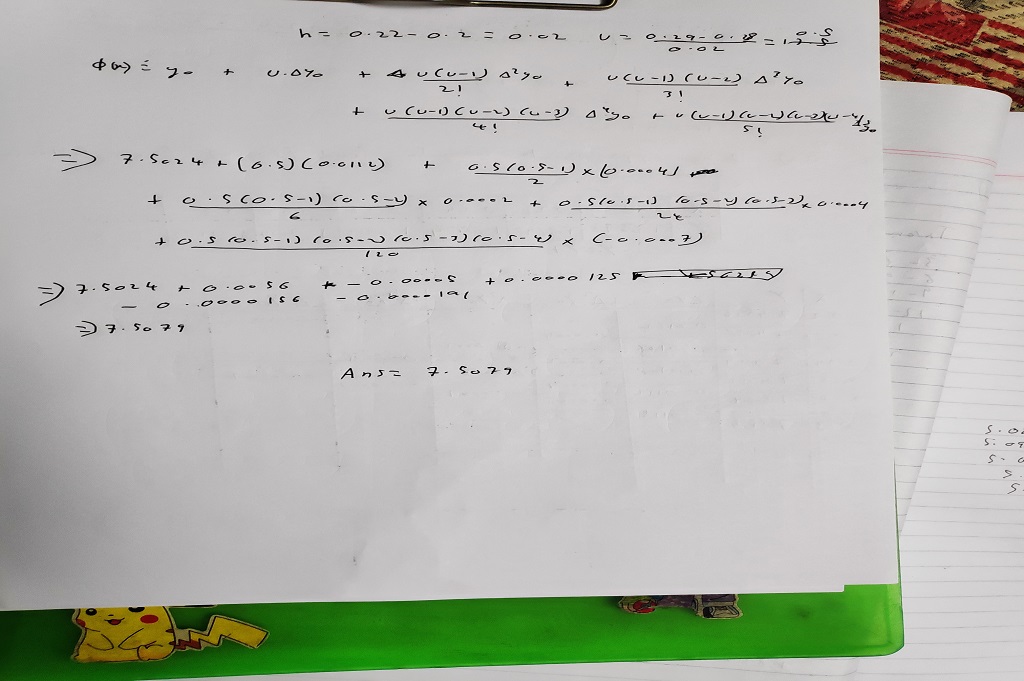 h = 0.22 - 0.2 = 0.02 u = (0.29 - 0.28)/0.02 = 0.5
φ(x) ≐ y₀ + u.Δy₀ + u(u-1)/2! Δ²y₀ + u(u-1)(u-2)/3! Δ³y₀
+ u(u-1)(u-2)(u-3)/4! Δ⁴y₀ + u(u-1)(u-2)(u-3)(u-4)/5!
⇒ 7.5024 + (0.5)(0.0112) + 0.5(0.5-1)/2 × (0.0004)
+ 0.5(0.5-1)(0.5-2)/6 × 0.0002 + 0.5(0.5-1)(0.5-2)(0.5-3)/24 × 0.0004
+ 0.5(0.5-1)(0.5-2)(0.5-3)(0.5-4)/120 × (-0.0007)
⇒ 7.5024 + 0.0056 - 0.00005 + 0.0000125
- 0.0000156 - 0.0000191
⇒ 7.5079
Ans = 7.5079